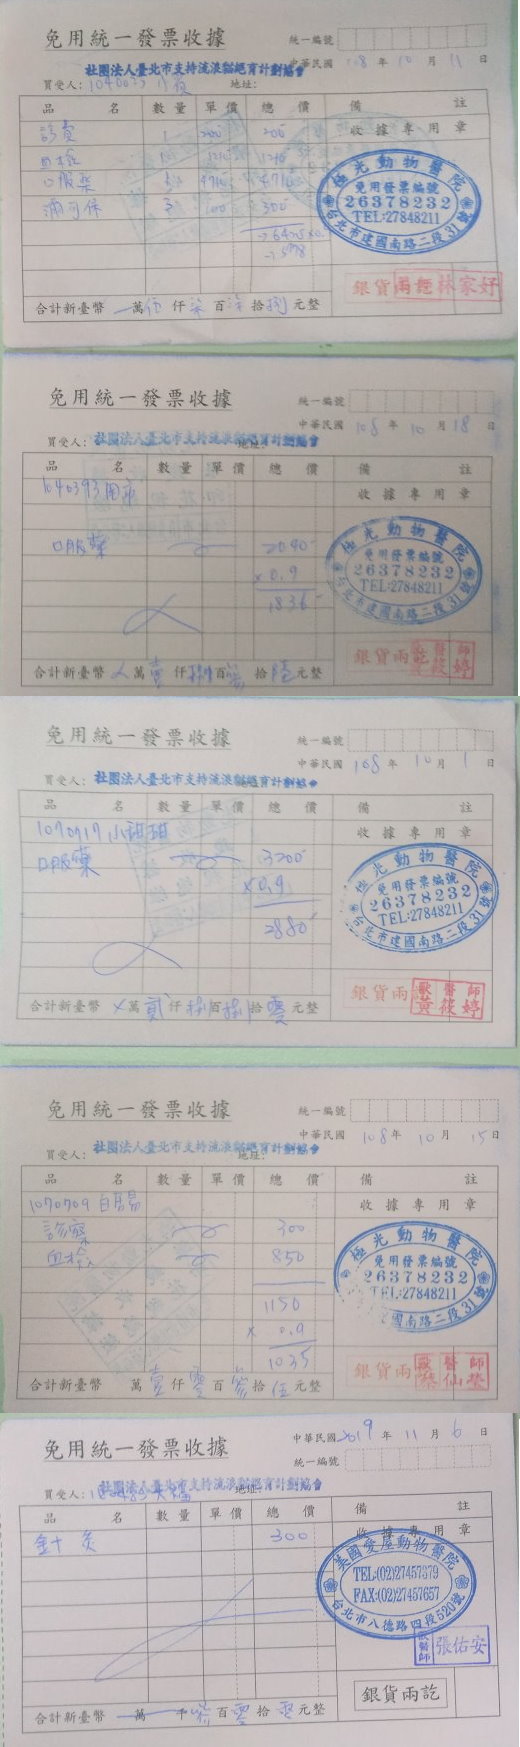 免用統一發票收據
統一編號
中華民國 108 年 10 月 11 日
社團法人臺北市支持流浪貓絕育計劃協會
買受人: 地址:
品 名 數量 單價 總價 備 註
診費 1 200 200 收據專用章
血檢 1210
口服藥 4715
滿可保 3 100 300
極光動物醫院
免用發票編號
26378232
TEL:27848211
台北市建國南路二段31號
銀貨兩訖 林家妤
合計新臺幣 萬伍仟柒百柒拾捌元整
免用統一發票收據
統一編號
中華民國 108 年 10 月 18 日
買受人: 社團法人臺北市支持流浪貓絕育計劃協會
地址:
品 名 數量 單價 總價 備 註
1040393 收據專用章
口服藥 2040
x 0.9
1836
極光動物醫院
免用發票編號
26378232
TEL:27848211
台北市建國南路二段31號
銀貨兩訖
合計新臺幣 萬壹仟捌百參拾陸元整
免用統一發票收據
統一編號
中華民國 108 年 10 月 1 日
買受人: 社團法人臺北市支持流浪貓絕育計劃協會
地址:
品 名 數量 單價 總價 備 註
1070717 小甜甜 收據專用章
口服藥 3200
x 0.9
2880
極光動物醫院
免用發票編號
26378232
TEL:27848211
台北市建國南路二段31號
銀貨兩訖 獸醫師 黃筱婷
合計新臺幣 萬貳仟捌百捌拾零元整
免用統一發票收據
統一編號
中華民國 108 年 10 月 15 日
買受人: 社團法人臺北市支持流浪貓絕育計劃協會
地址:
品 名 數量 單價 總價 備 註
1070709 白吉易 收據專用章
診察 300
血檢 850
1150
x 0.9
1035
極光動物醫院
免用發票編號
26378232
TEL:27848211
國南路二段31號
銀貨兩 獸醫師
合計新臺幣 萬壹仟零百參拾伍元整
中華民國 2019 年 11 月 6 日
免用統一發票收據
統一編號
買受人: 社團法人臺北市支持流浪貓絕育計劃協會
地址:
品 名 數量 單價 總價 備 註
針灸 300 收據專用章
美國愛屋動物醫院
TEL:(02)27457379
FAX:(02)27457657
台北市八德路四段520號
獸醫師 張佑安
銀貨兩訖
合計新臺幣 萬 仟參百零拾零元整